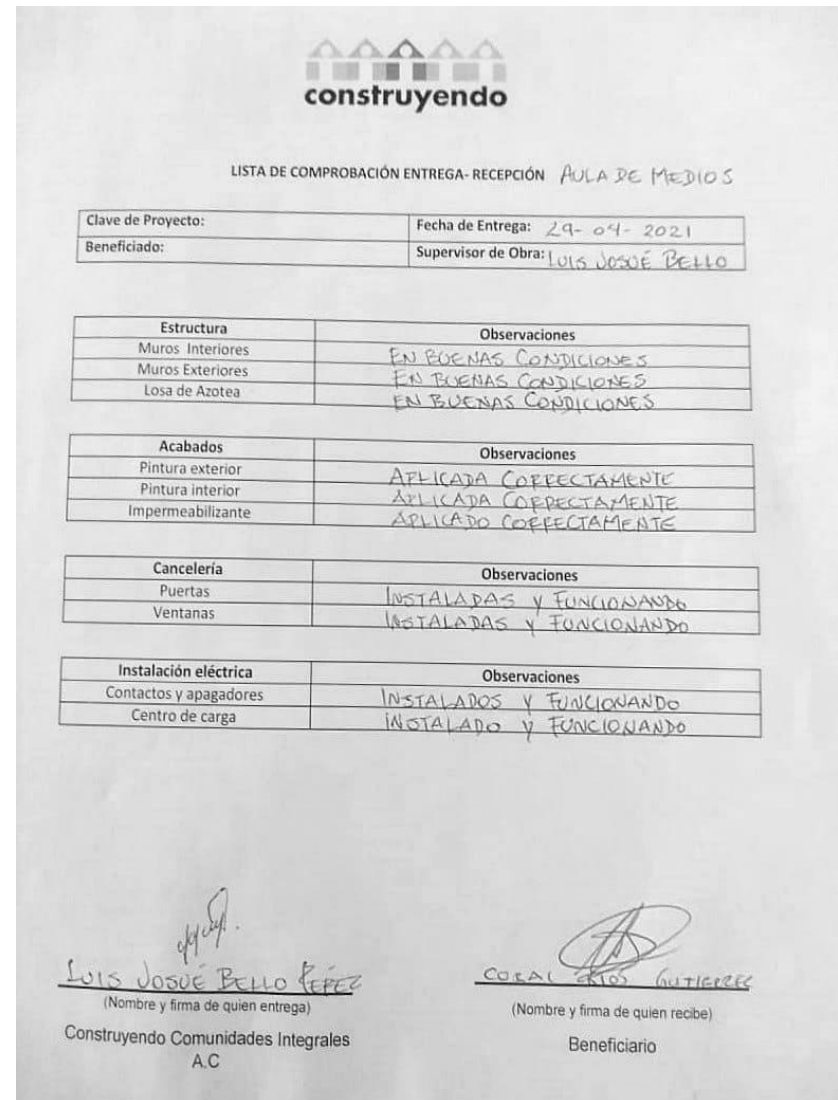 construyendo
LISTA DE COMPROBACIÓN ENTREGA- RECEPCIÓN AULA DE MEDIOS
Clave de Proyecto: Fecha de Entrega: 29-04-2021
Beneficiado: Supervisor de Obra: LUIS JOSUÉ BELLO
Estructura Observaciones
Muros Interiores EN BUENAS CONDICIONES
Muros Exteriores EN BUENAS CONDICIONES
Losa de Azotea EN BUENAS CONDICIONES
Acabados Observaciones
Pintura exterior APLICADA CORRECTAMENTE
Pintura interior APLICADA CORRECTAMENTE
Impermeabilizante APLICADO CORRECTAMENTE
Cancelería Observaciones
Puertas INSTALADAS Y FUNCIONANDO
Ventanas INSTALADAS Y FUNCIONANDO
Instalación eléctrica Observaciones
Contactos y apagadores INSTALADOS Y FUNCIONANDO
Centro de carga INSTALADO Y FUNCIONANDO
LUIS JOSUÉ BELLO PÉREZ CORAL RÍOS GUTIERREZ
(Nombre y firma de quien entrega) (Nombre y firma de quien recibe)
Construyendo Comunidades Integrales Beneficiario
A.C